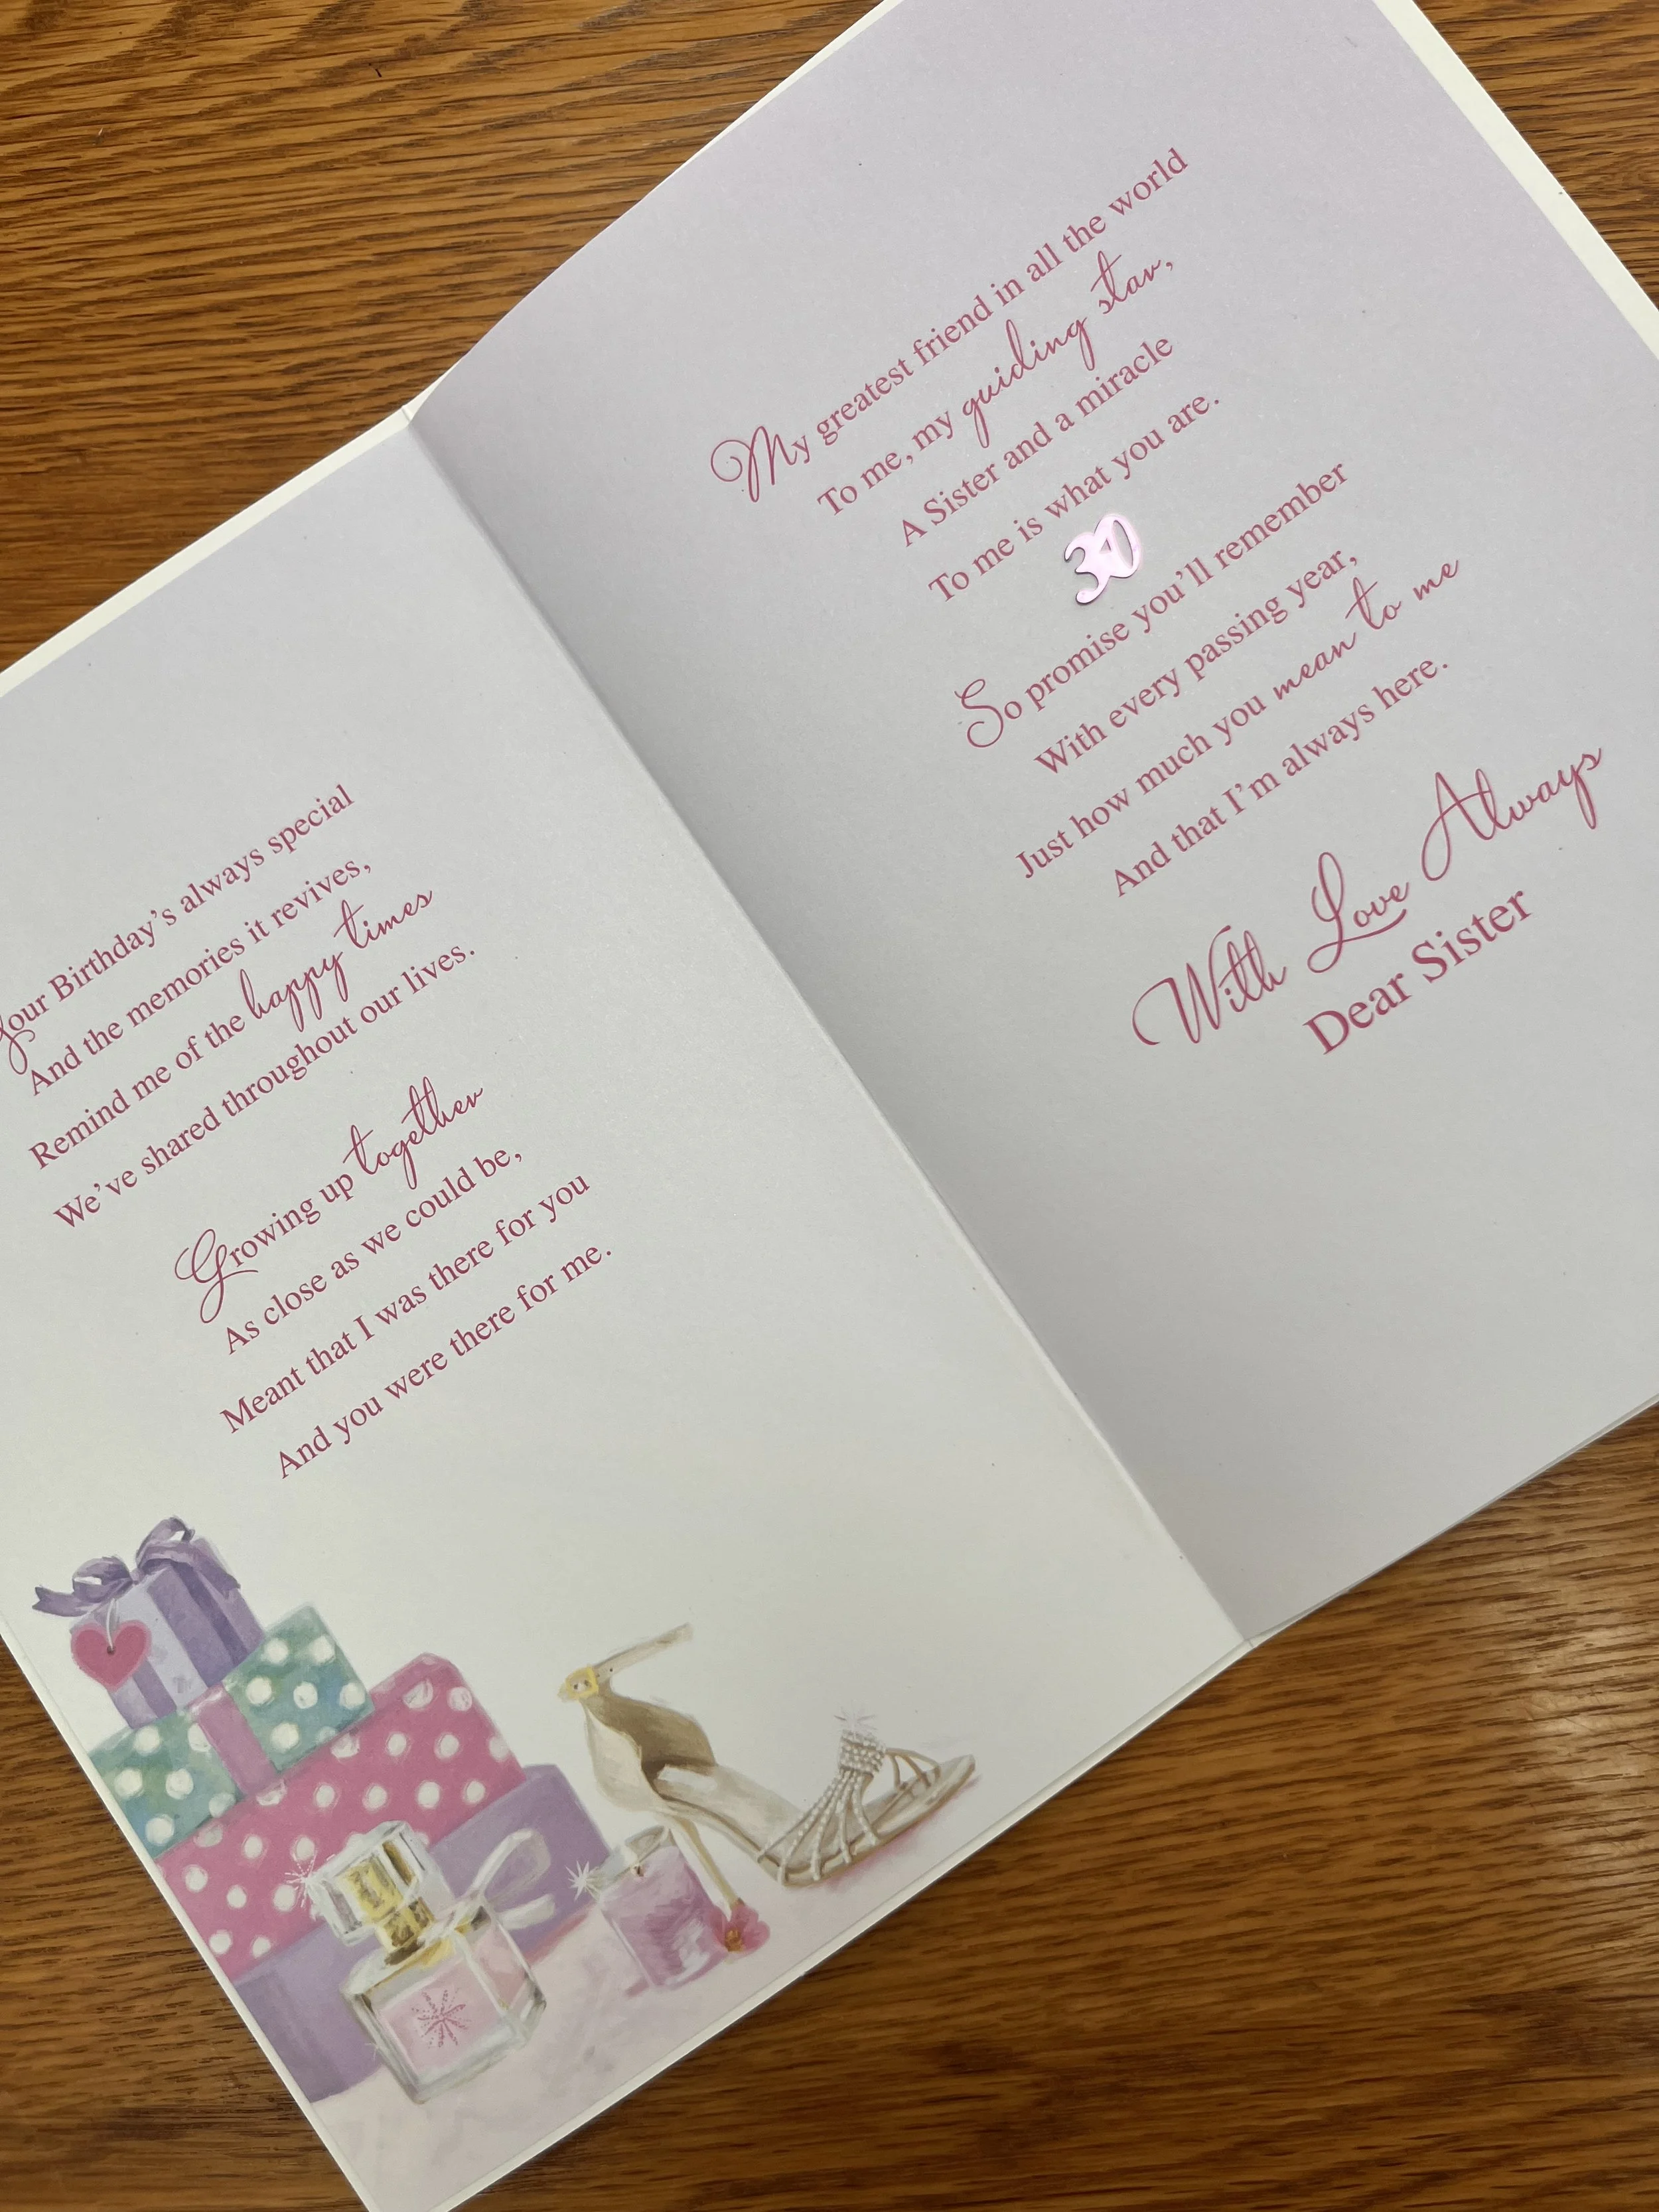 Your Birthday's always special
And the memories it revives,
Remind me of the happy times
We've shared throughout our lives.
Growing up together
As close as we could be,
Meant that I was there for you
And you were there for me.
My greatest friend in all the world
To me, my guiding star,
A Sister and a miracle
To me is what you are.
30
So promise you'll remember
With every passing year,
Just how much you mean to me
And that I'm always here.
With Love Always
Dear Sister